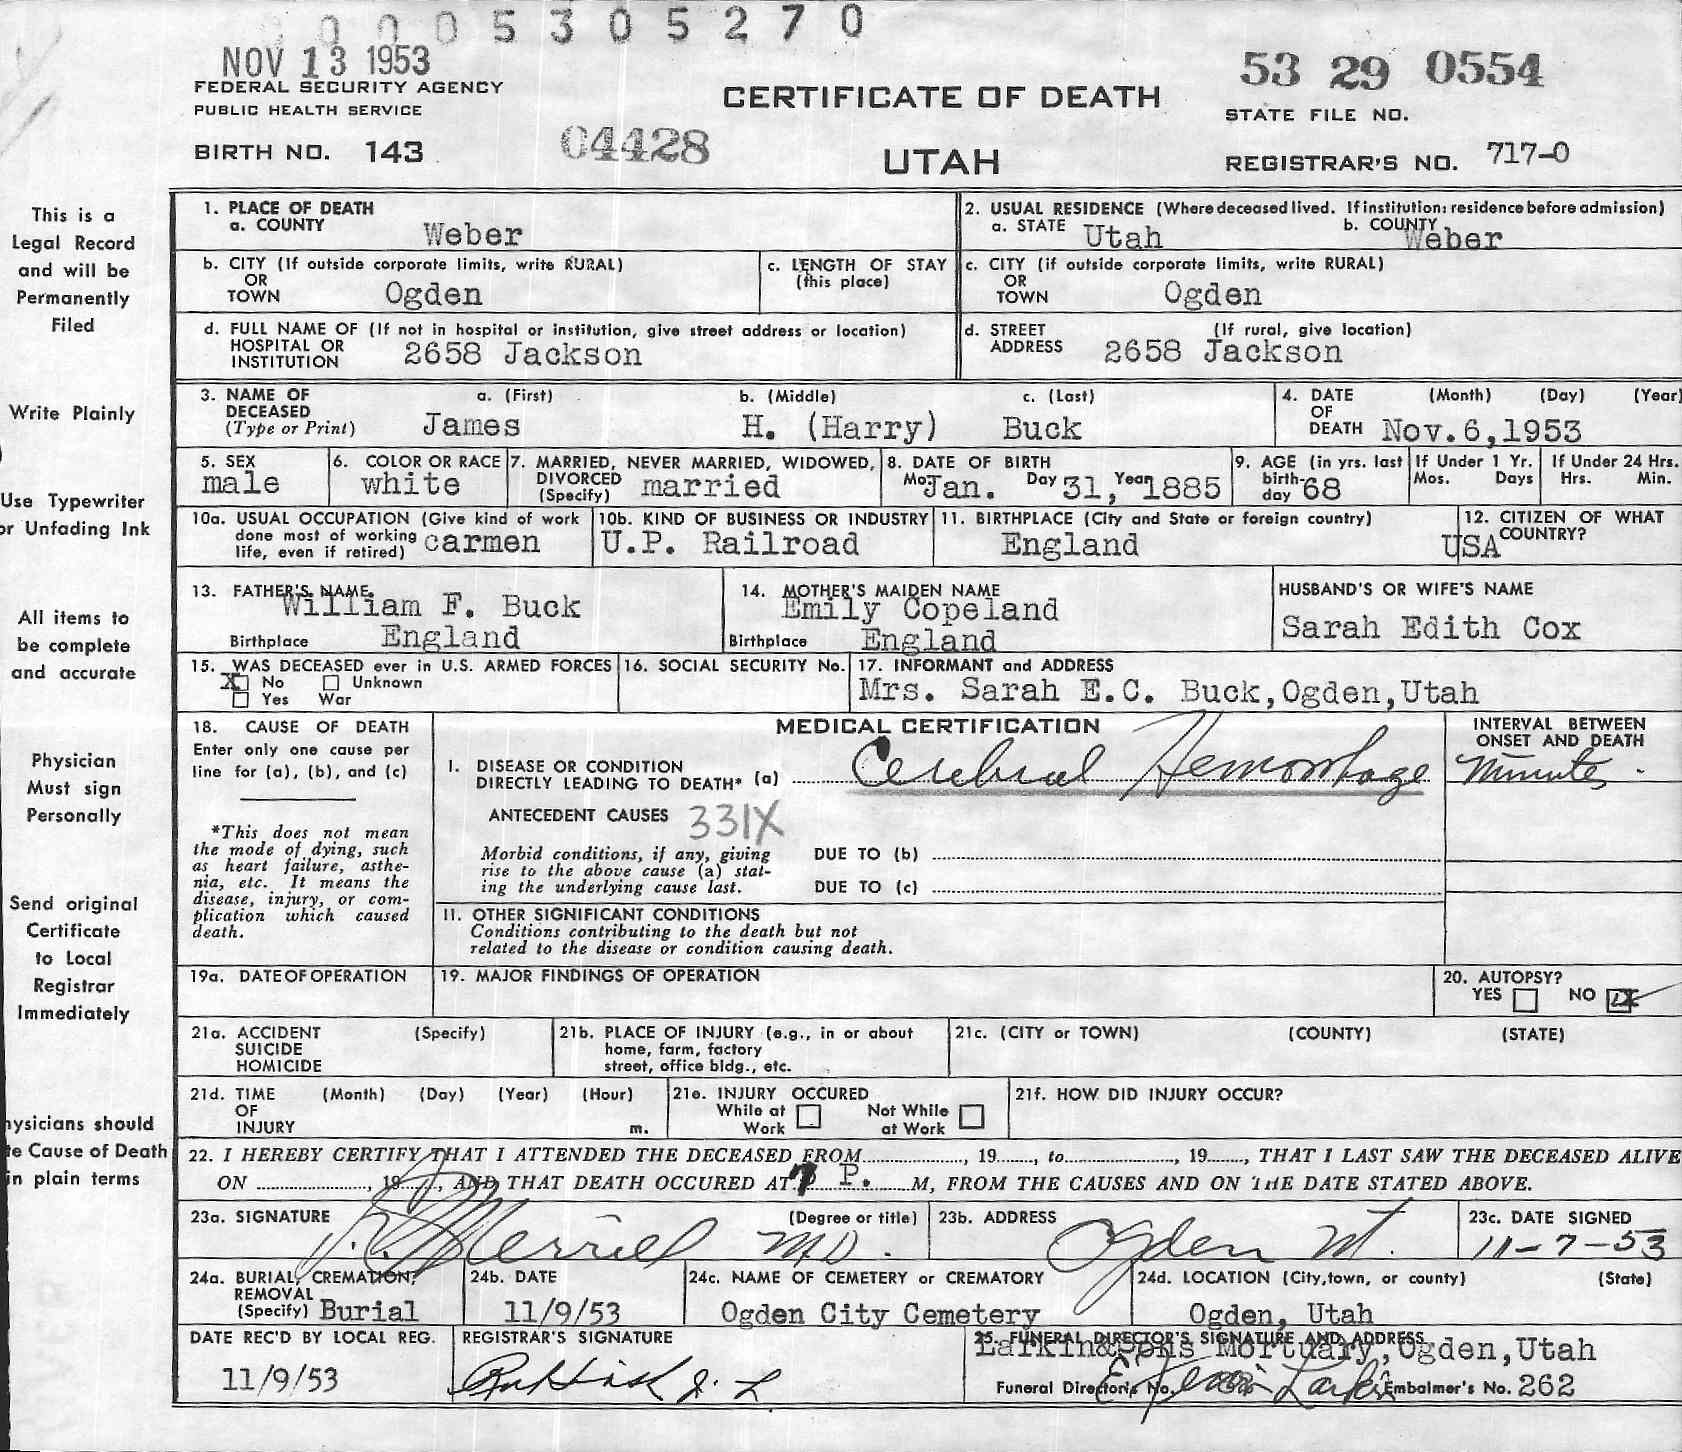 0005305270
NOV 13 1953
FEDERAL SECURITY AGENCY
PUBLIC HEALTH SERVICE
BIRTH NO. 143
04428
CERTIFICATE OF DEATH
UTAH
53 29 0554
STATE FILE NO.
REGISTRAR'S NO. 717-0
This is a
Legal Record
and will be
Permanently
Filed
Write Plainly
Use Typewriter
or Unfading Ink
All items to
be complete
and accurate
Physician
Must sign
Personally
Send original
Certificate
to Local
Registrar
Immediately
ysicians should
te Cause of Death
in plain terms
1. PLACE OF DEATH
a. COUNTY Weber
2. USUAL RESIDENCE (Where deceased lived. If institution: residence before admission)
a. STATE Utah b. COUNTY Weber
b. CITY (If outside corporate limits, write RURAL)
OR
TOWN Ogden
c. LENGTH OF STAY
(this place)
c. CITY (if outside corporate limits, write RURAL)
OR
TOWN Ogden
d. FULL NAME OF (If not in hospital or institution, give street address or location)
HOSPITAL OR
INSTITUTION 2658 Jackson
d. STREET (If rural, give location)
ADDRESS 2658 Jackson
3. NAME OF DECEASED (Type or Print)
a. (First) b. (Middle) c. (Last)
James H. (Harry) Buck
4. DATE OF DEATH (Month) (Day) (Year)
Nov. 6, 1953
5. SEX
male
6. COLOR OR RACE
white
7. MARRIED, NEVER MARRIED, WIDOWED,
DIVORCED
(Specify) married
8. DATE OF BIRTH
Mo. Jan. Day 31, Year 1885
9. AGE (in yrs. last
birth-
day 68
If Under 1 Yr.
Mos. Days
If Under 24 Hrs.
Hrs. Min.
10a. USUAL OCCUPATION (Give kind of work
done most of working
life, even if retired) carmen
10b. KIND OF BUSINESS OR INDUSTRY
U.P. Railroad
11. BIRTHPLACE (City and State or foreign country)
England
12. CITIZEN OF WHAT
COUNTRY?
USA
13. FATHER'S NAME
William F. Buck
Birthplace England
14. MOTHER'S MAIDEN NAME
Emily Copeland
Birthplace England
HUSBAND'S OR WIFE'S NAME
Sarah Edith Cox
15. WAS DECEASED ever in U.S. ARMED FORCES
X No Unknown
Yes War
16. SOCIAL SECURITY No.
17. INFORMANT and ADDRESS
Mrs. Sarah E.C. Buck, Ogden, Utah
18. CAUSE OF DEATH
Enter only one cause per
line for (a), (b), and (c)
*This does not mean
the mode of dying, such
as heart failure, asthe-
nia, etc. It means the
disease, injury, or com-
plication which caused
death.
MEDICAL CERTIFICATION
I. DISEASE OR CONDITION
DIRECTLY LEADING TO DEATH* (a) Cerebral Hemorrhage
INTERVAL BETWEEN
ONSET AND DEATH
Minutes.
ANTECEDENT CAUSES 331X
Morbid conditions, if any, giving
rise to the above cause (a) stat-
ing the underlying cause last.
DUE TO (b)
DUE TO (c)
II. OTHER SIGNIFICANT CONDITIONS
Conditions contributing to the death but not
related to the disease or condition causing death.
19a. DATE OF OPERATION
19. MAJOR FINDINGS OF OPERATION
20. AUTOPSY?
YES NO X
21a. ACCIDENT (Specify)
SUICIDE
HOMICIDE
21b. PLACE OF INJURY (e.g., in or about
home, farm, factory
street, office bldg., etc.
21c. (CITY or TOWN) (COUNTY) (STATE)
21d. TIME (Month) (Day) (Year) (Hour)
OF
INJURY m.
21e. INJURY OCCURED
While at Work Not While at Work
21f. HOW DID INJURY OCCUR?
22. I HEREBY CERTIFY THAT I ATTENDED THE DECEASED FROM, 19, to, 19, THAT I LAST SAW THE DECEASED ALIVE
ON, 19, AND THAT DEATH OCCURED AT 7 P. M, FROM THE CAUSES AND ON THE DATE STATED ABOVE.
23a. SIGNATURE (Degree or title)
Merrill M.D.
23b. ADDRESS
Ogden Ut.
23c. DATE SIGNED
11-7-53
24a. BURIAL, CREMATION,
REMOVAL
(Specify) Burial
24b. DATE
11/9/53
24c. NAME OF CEMETERY or CREMATORY
Ogden City Cemetery
24d. LOCATION (City, town, or county) (State)
Ogden, Utah
DATE REC'D BY LOCAL REG.
11/9/53
REGISTRAR'S SIGNATURE
25. FUNERAL DIRECTOR'S SIGNATURE AND ADDRESS
Larkin&Sons Mortuary, Ogden, Utah
Funeral Director's No. Larkin Embalmer's No. 262